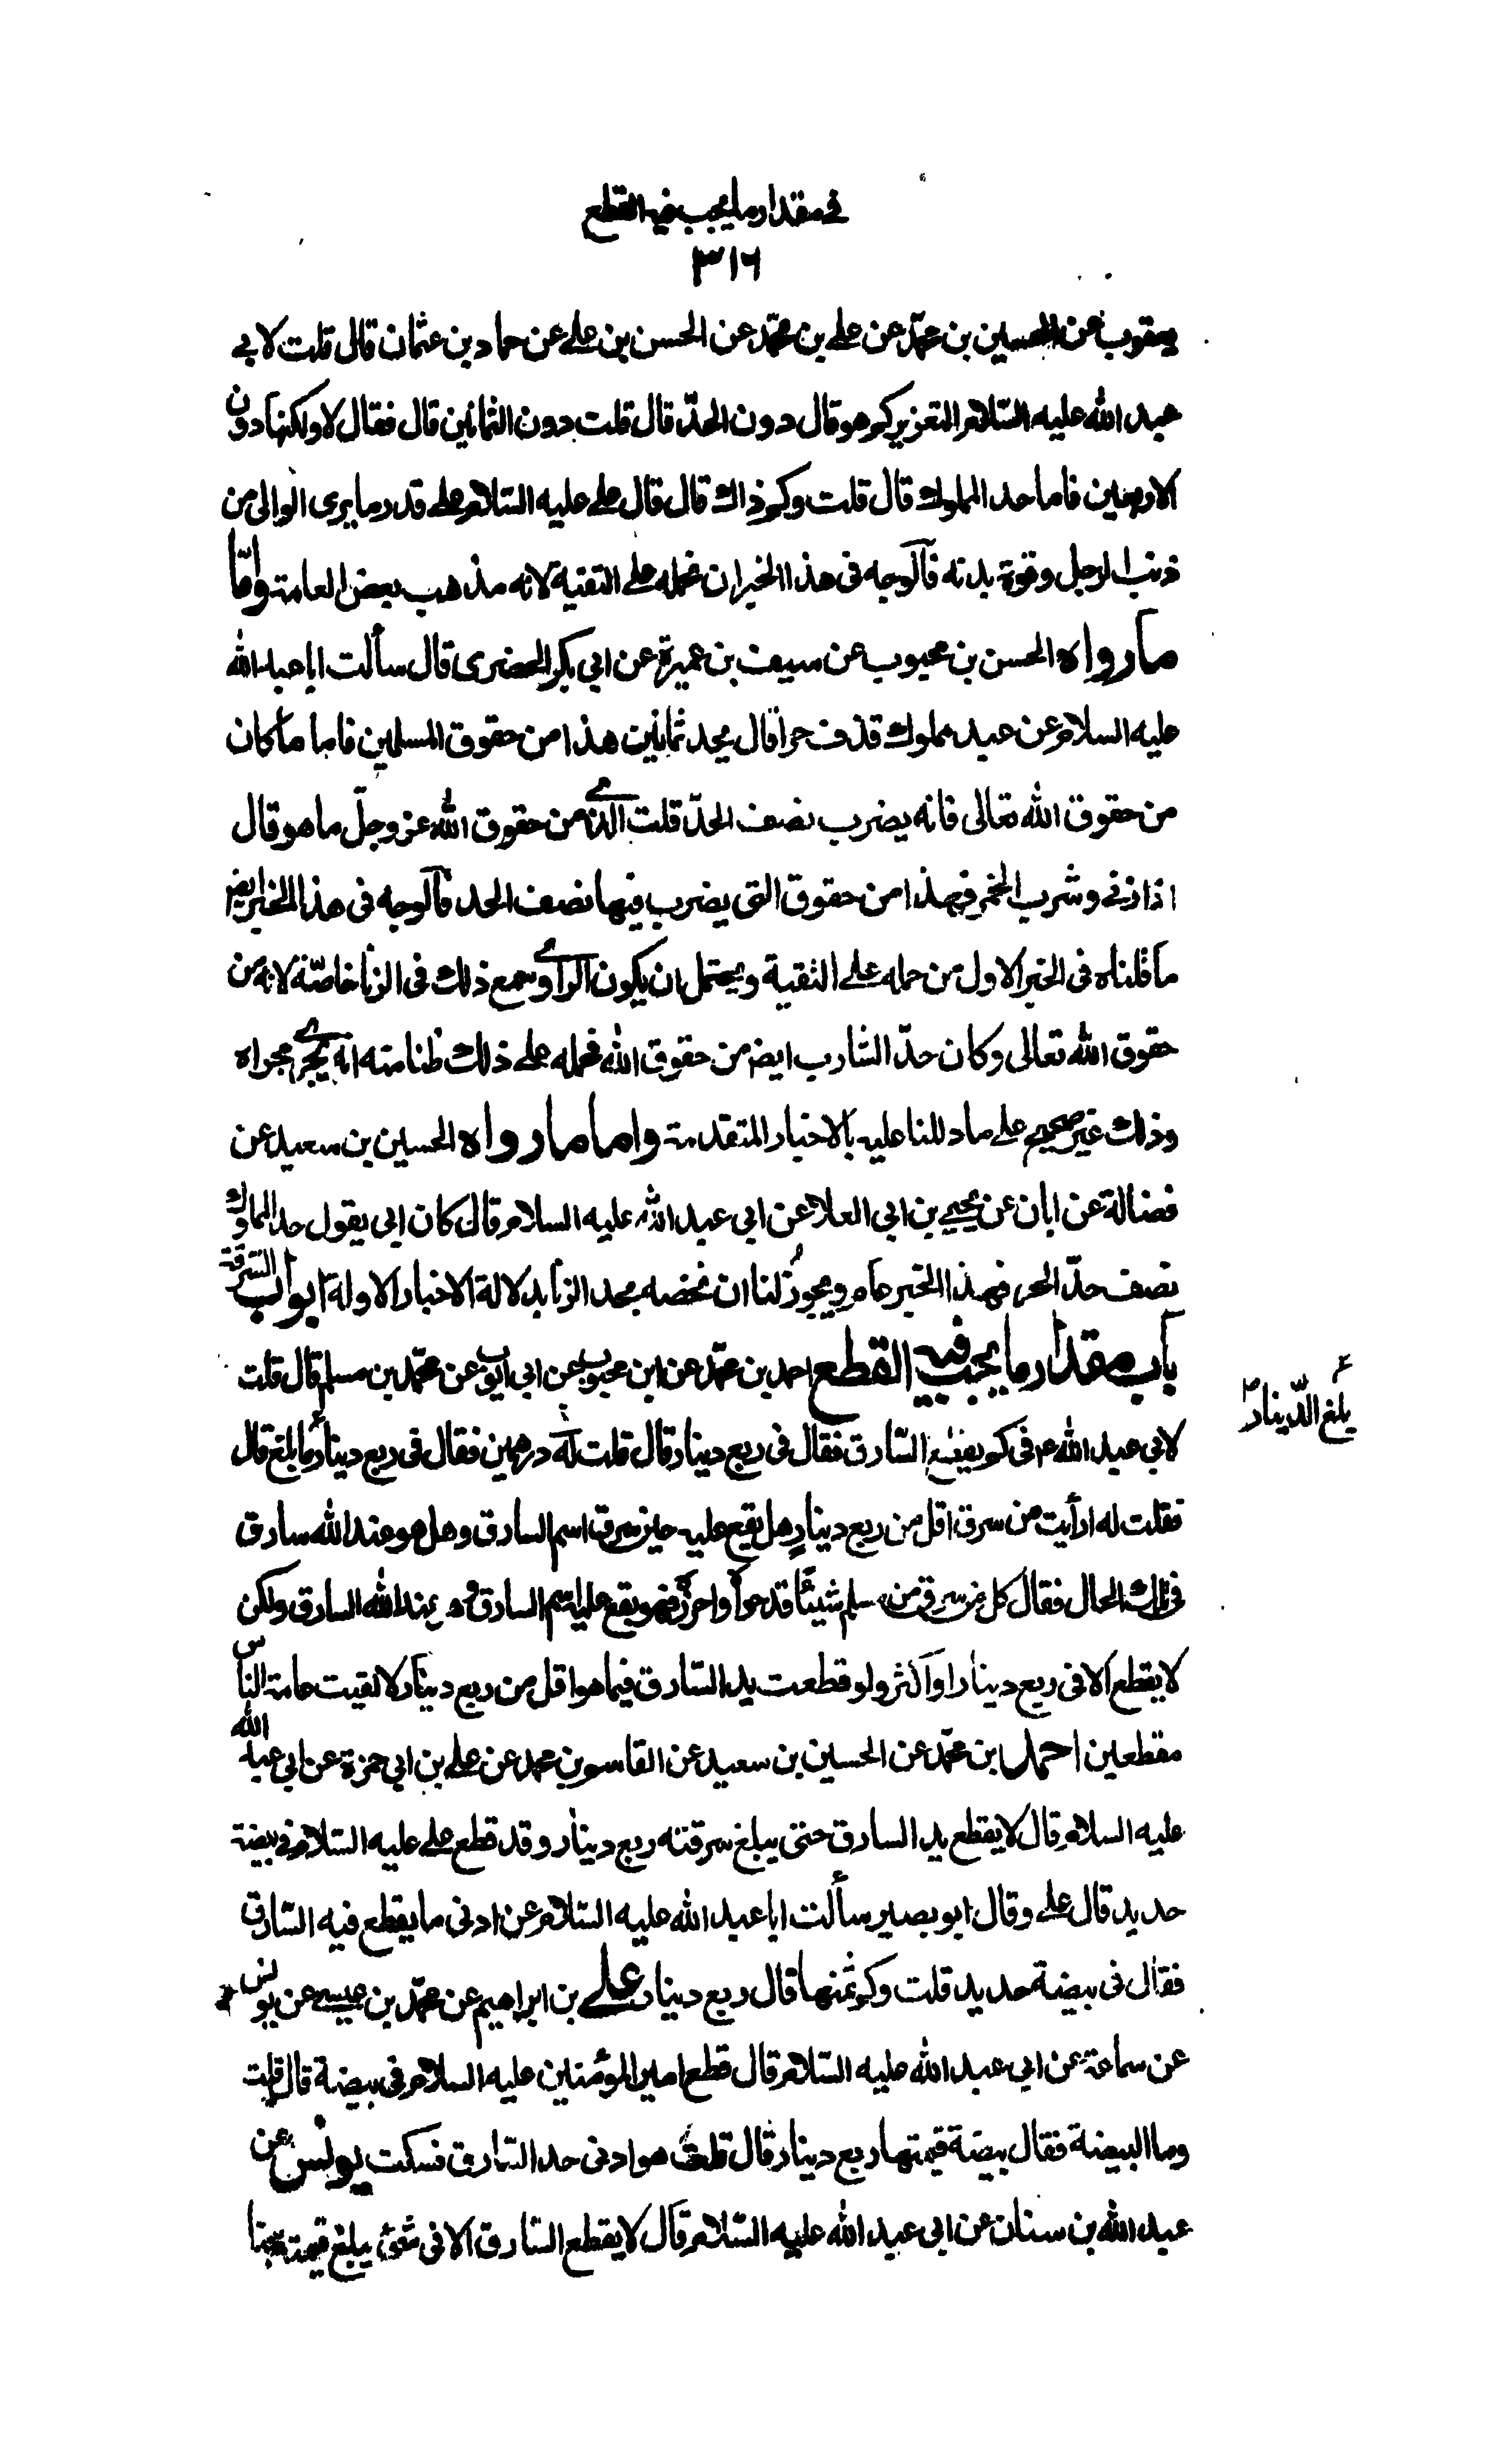 في مقدار ما يجب فيه القطع
٣١٦
يعقوب عن الحسين بن محمّد عن علي بن محمّد عن الحسن بن علي عن حماد بن عثمان قال قلت لابي
عبد الله عليه السّلام التعزير كم هو قال دون الحدّ قال قلت دون الثمانين قال فقال لا ولكنها دون
الاربعين فاما حد المملوك قال قلت وكم ذاك قال قال علي عليه السّلام على قدر ما يرى الوالى من
ذنب الرجل وقوة بدنه فالوجه فى هذا الخبر ان نحمله على التقية لانه مذهب بعض العامة وامّا
ما رواه الحسن بن محبوب عن سيف بن عميرة عن ابي بكر الحضرمى قال سألت ابا عبد الله
عليه السلام عن عبد مملوك قذف حرا قال يحد ثمانين هذا من حقوق المسلمين فاما ما كان
من حقوق الله تعالى فانه يضرب نصف الحدّ قلت الذي من حقوق الله عز وجلّ ما هو قال
اذا زنى وشرب الخمر فهذا من حقوق التى يضرب فيها نصف الحد فالوجه فى هذا الخبر ايضا
ما قلناه فى الخبر الاول من حمله على التقية ويحتمل ان يكون الراوي سمع ذلك فى الزنا خاصّة لانه من
حقوق الله تعالى وكان حدّ الشارب ايض من حقوق الله فحمله على ذلك ظنا منه انه يجري مجراه
وذلك غير صحيح على ما دللنا عليه بالاخبار المتقدمة واما ما رواه الحسين بن سعيد عن
فضالة عن ابان عن يحيى بن ابي العلاء عن ابي عبد الله عليه السلام قال كان ابي يقول حد المملوك
نصف حدّ الحر فهذا الخبر عام ويجوز لنا ان نخصه بحد الزنا بدلالة الاخبار الاولة ابواب السّرقة
باب مقدار ما يجب فيه القطع احمد بن محمّد عن ابن محبوب عن ابي ايّوب عن محمّد بن مسلم قال قلت
لابي عبد الله ع فى كم يقطع السّارق فقال فى ربع دينار قال قلت له درهمين فقال فى ربع دينار ما بلغ قال
يلغ الدّينار
فقلت له ارأيت من سرق اقل من ربع دينار هل يقع عليه حين سرق اسم السارق وهل هو عند الله سارق
فى تلك الحال فقال كل من سرق من مسلم شيئا قد حواه واحرزه فهو يقع عليه اسم السارق وهو عند الله السارق ولكن
لا يقطع الا فى ربع دينار او اكثر ولو قطعت يد السّارق فيما هو اقل من ربع دينار لالفيت عامة الناس
مقطعين احمد بن محمّد عن الحسين بن سعيد عن القاسم بن محمد عن علي بن ابي حمزة عن ابي عبد الله
عليه السلام قال لا يقطع يد السارق حتى يبلغ سرقته ربع دينار وقد قطع علي عليه السّلام في بيضة
حديد قال علي وقال ابو بصير سألت ابا عبد الله عليه السّلام عن ادنى ما يقطع فيه السّارق
فقال فى بيضة حديد قلت وكم ثمنها قال ربع دينار علي بن ابراهيم عن محمّد بن عيسى عن يونس
عن سماعة عن ابي عبد الله عليه السّلام قال قطع امير المؤمنين عليه السلام فى بيضة قال قلت
وما البيضة فقال بيضة قيمتها ربع دينار قال قلت هو ادنى حد السّارق فسكت يونس عن
عبد الله بن سنان عن ابي عبد الله عليه السّلام قال لا يقطع السّارق الا فى شئ يبلغ قيمته مجنا